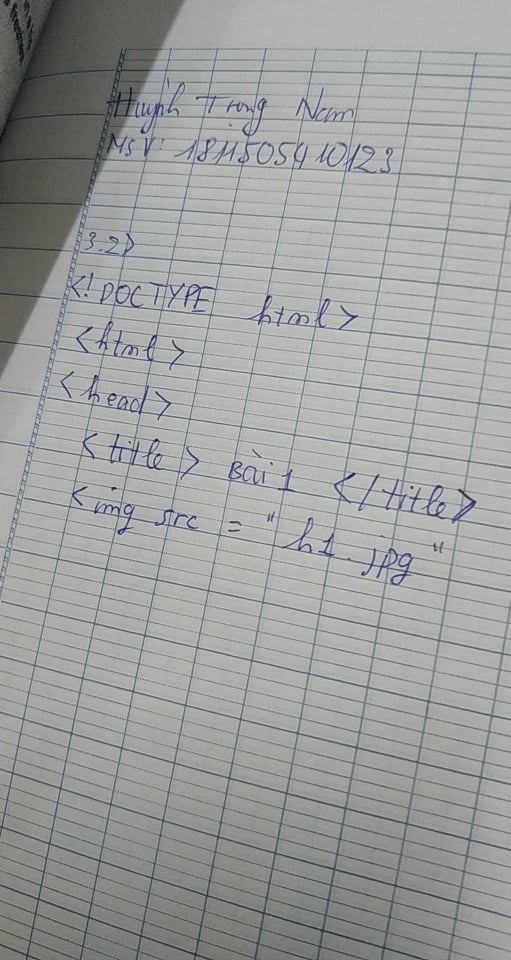 Huỳnh Trung Nam
MSV: 1811505410123
3.2>
<!DOCTYPE html>
<html>
<head>
<title> Bài 1 </title>
<img src = "h1.jpg"